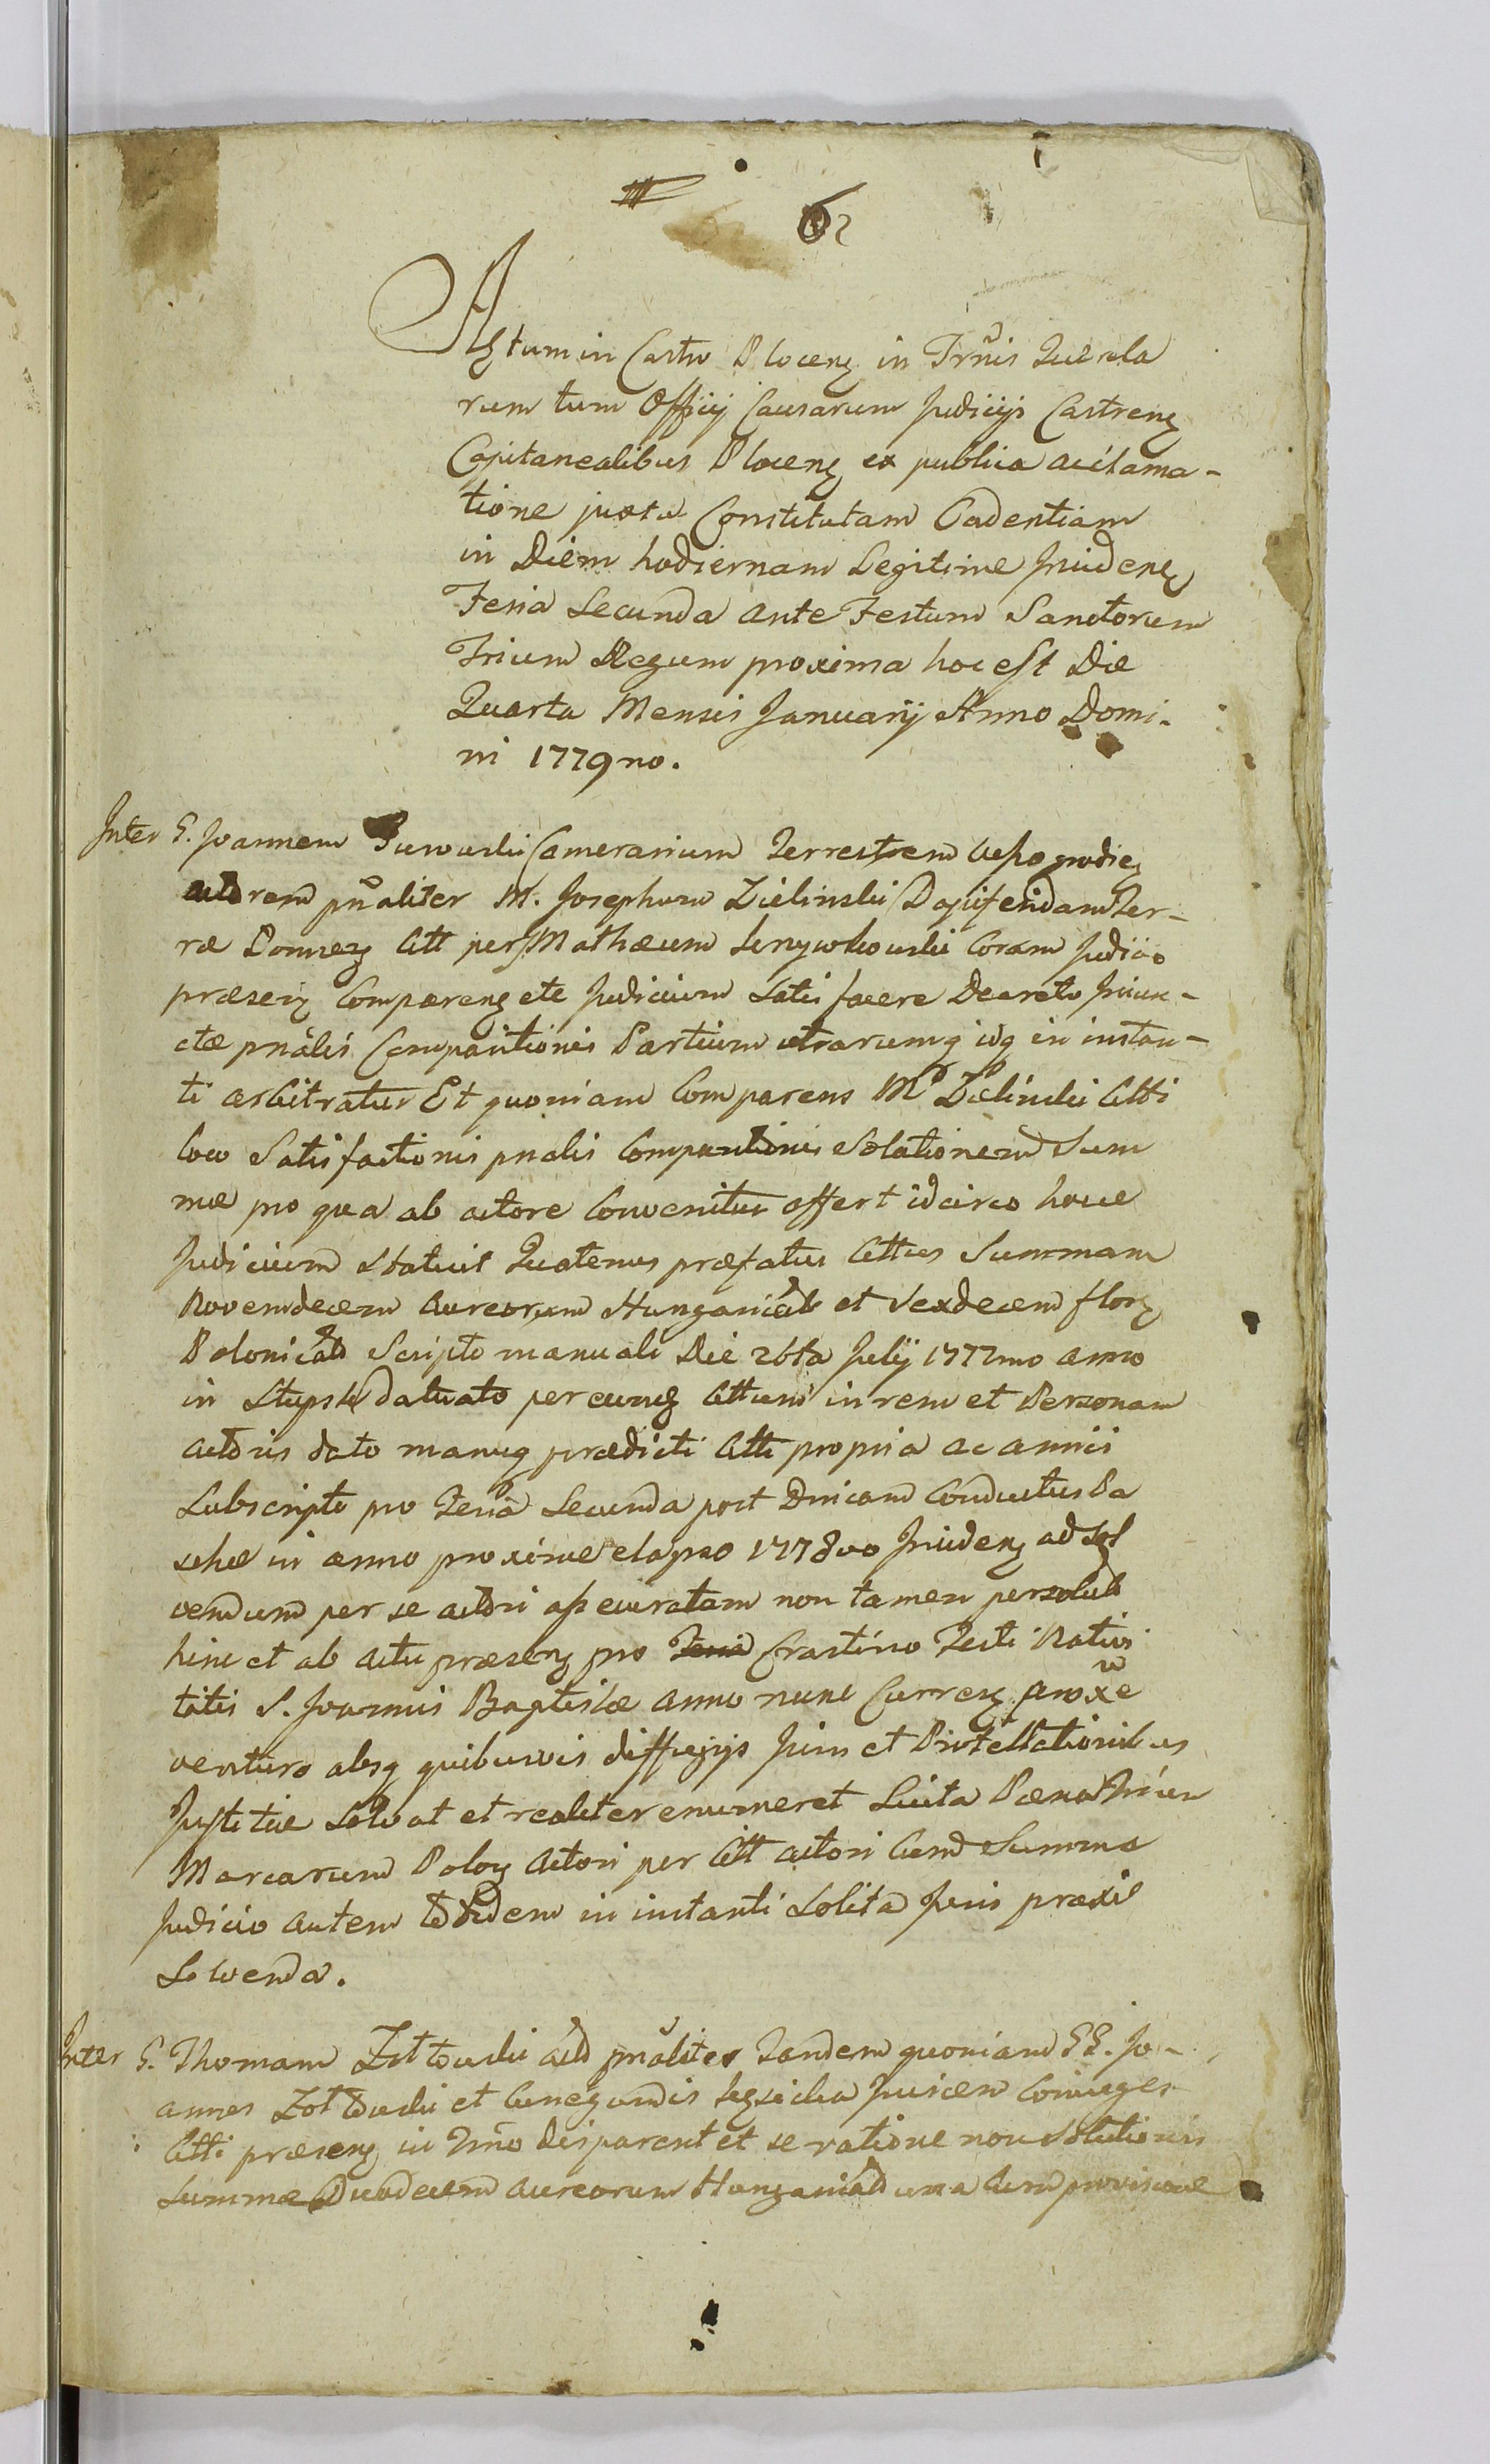 62
Actum in Castro Plocen in Trnis Querela
rum tum Officij Causarum Judicijs Castren
Capitanealibus Plocen ex publica acclama-
tione juxta Constitutam Cadentiam
in Diem hodiernam Legitime Inciden
Feria Secunda ante Festum Sanctorum
Trium Regum proxima hoc est Die
Quarta Mensis Januarij Anno Domi-
ni 1779no.
Inter G. Joannem Camerarium Terrestrem
actorem pnaliter M. Josephum Zielinski Dapiferidam Ter-
ræ Ctt per Mathæum coram Judicio
præsen Comparen etc Judicium Satisfacere Decreto Iniun-
ctæ pnalis Comparitionis Partium utrarumq idq in instan-
ti arbitratur Et quoniam Comparens M. Zielinski Ctti
loco Satisfactionis pnalis Comparitionis Solutionem Sum
mæ pro qua ab actore Convenitur offert idcirco hocce
Judicium Statuit Quatenus præfatus Cttus Summam
Novemdecem Aureorum Hungarical et Sexdecem flor
Polonical Scripto manuali Die 26ta Julij 1777mo anno
in Slupsk datuato per eunq Cttum in rem et Personam
actoris dato manuq prædicti Ctti propria ac amici
Subscripto pro Feria Secunda post Dnicam Conductus Pa
schæ in anno proxime elapso 1778vo Inciden ad Sol
vendum per se actori assecuratam non tamen persolut
hinc et ab actu præsen pro Feria Crastino Festi Nativi
tatis S. Joannis Baptistæ anno nunc Curren proxe
venturo absq quibusvis diffugijs Juris et Protellationibus
Justitiæ Solvat et realiter enumeret Luita Pæna Trium
Marcarum Polon Actori per Ctt actori Cum Summa
Judicio autem totidem in instanti Solita Juris præxi
Solvenda.
Inter G. Thomam act pnaliter Tandem quoniam GG. Jo-
annes et Cunegundis Conjuges
Ctti præsen in Trno disparent et se ratione non Solutionis
Summæ Duodecem aureorum Hungarical una cum provisione